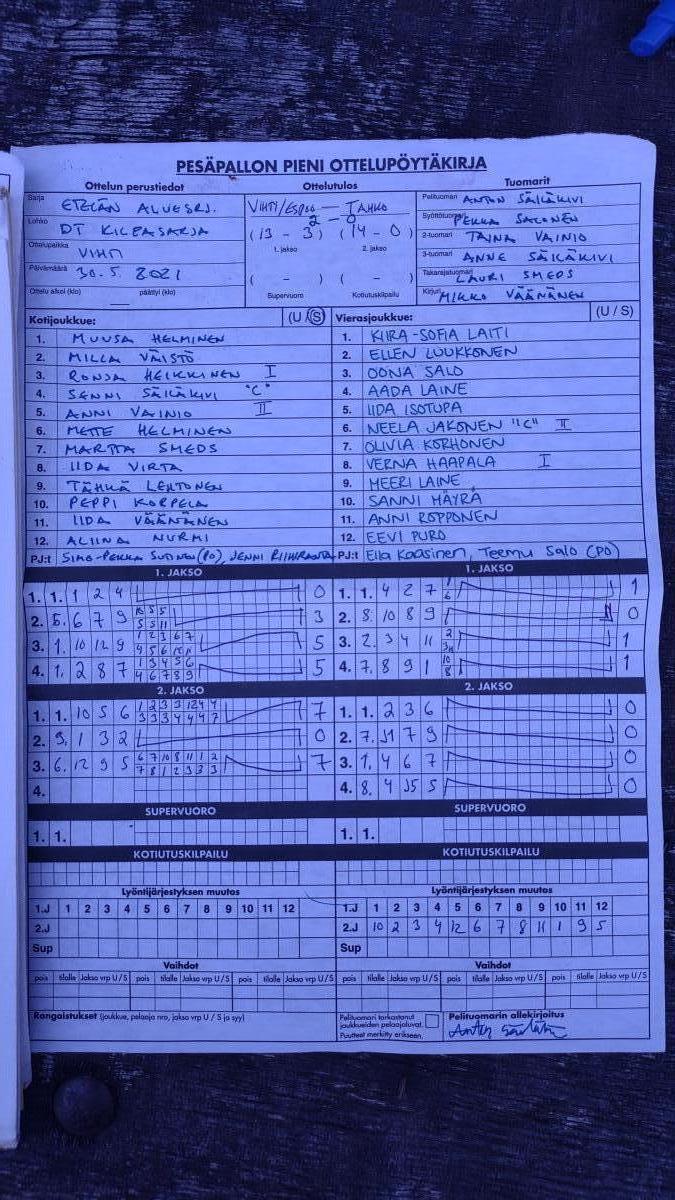 PESÄPALLON PIENI OTTELUPÖYTÄKIRJA
Ottelun perustiedot
Sarja ETELÄN ALUESRJ.
Lohko DT KILPASARJA
Ottelupaikka VIHTI
Päivämäärä 30.5. 2021
Ottelu alkoi (klo) päättyi (klo)
Ottelutulos
VIHTI/ESPOO — TAHKO
2 - 0
(13 - 3) (14 - 0)
1. jakso 2. jakso
( - ) ( - )
Supervuoro Kotiutuskilpailu
Tuomarit
Pelituomari ANTON SÄILÄKIVI
Syöttötuomari PEKKA SALONEN
2-tuomari TAINA VAINIO
3-tuomari ANNE SÄILÄKIVI
Takarajatuomari LAURI SMEDS
Kirjuri MIKKO VÄÄNÄNEN
Kotijoukkue: (U / S)
1. MUUSA HELMINEN
2. MILLA VÄISTÖ
3. RONJA HEIKKINEN I
4. SENNI SÄILÄKIVI "C"
5. ANNI VAINIO II
6. METTE HELMINEN
7. MARTTA SMEDS
8. IIDA VIRTA
9. TÄHKÄ LEHTONEN
10. PEPPI KORPELA
11. IIDA VÄÄNÄNEN
12. ALIINA NURMI
PJ:t SIMO-PEKKA (PO), JENNI
Vierasjoukkue: (U / S)
1. KIIRA-SOFIA LAITI
2. ELLEN LUUKKONEN
3. OONA SALO
4. AADA LAINE
5. IIDA ISOTUPA
6. NEELA JAKONEN "C" II
7. OLIVIA KORHONEN
8. VERNA HAAPALA I
9. MEERI LAINE
10. SANNI MÄYRÄ
11. ANNI ROPPONEN
12. EEVI PURO
PJ:t Ella Kaasinen, Teemu Salo (PO)
1. JAKSO
1. 1. 1 2 4 0
2. 5. 6 7 9 3
3. 1. 10 12 9 5
4. 1. 2 8 7 5
2. JAKSO
1. 1. 10 5 6 7
2. 9. 1 3 2 0
3. 6. 12 9 5 7
4.
SUPERVUORO
1. 1.
KOTIUTUSKILPAILU
Lyöntijärjestyksen muutos
1.J 1 2 3 4 5 6 7 8 9 10 11 12
2.J
Sup
Vaihdot
pois tilalle Jakso vrp U / S pois tilalle Jakso vrp U / S pois tilalle Jakso vrp U / S
Rangaistukset (joukkue, pelaaja nro, jakso vrp U / S ja syy)
1. JAKSO
1. 1. 4 2 7 1
2. 8. 10 8 9 0
3. 2. 3 4 11 1
4. 7. 8 9 1 1
2. JAKSO
1. 1. 2 3 6 0
2. 7. 7 9 0
3. 1. 4 6 7 0
4. 8. 4 5 0
SUPERVUORO
1. 1.
KOTIUTUSKILPAILU
Lyöntijärjestyksen muutos
1.J 1 2 3 4 5 6 7 8 9 10 11 12
2.J 10 2 3 4 12 6 7 8 11 1 9 5
Sup
Vaihdot
pois tilalle Jakso vrp U / S pois tilalle Jakso vrp U / S pois tilalle Jakso vrp U / S
Pelituomari tarkastanut
joukkueiden pelaajaluvat.
Puutteet merkitty erikseen.
Pelituomarin allekirjoitus